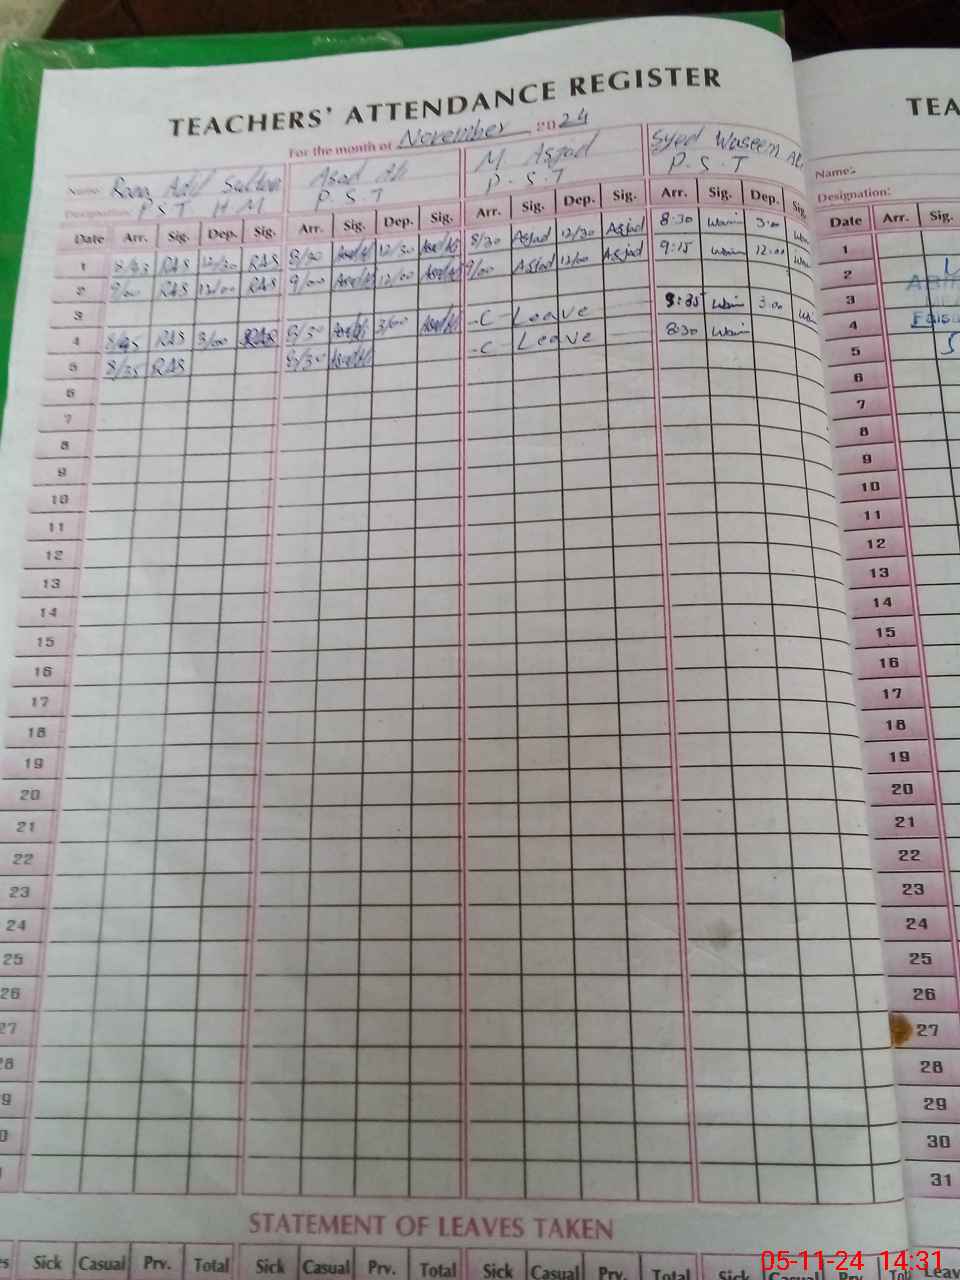 TEACHERS' ATTENDANCE REGISTER
For the month of November 2024
Name: Rana Adil Sultan Asad Ali M Asjad Syed Waseem Ali
Designation: P S T H M P. S. T P. S. T P. S. T
Date Arr. Sig. Dep. Sig. Arr. Sig. Dep. Sig. Arr. Sig. Dep. Sig. Arr. Sig. Dep. Sig.
1 RAS 12/30 RAS 8/30 12/30 8/30 Asjad 12/30 Asjad 8:30 3:00
2 9/00 RAS 12/00 RAS 9/00 12/00 9/00 Asjad 12/00 Asjad 9:15 12:00
3
4 RAS 3/00 RAS 8/30 3/00 C Leave 8:35 3:00
5 8/35 RAS 8/30 C Leave 8:30
6
7
8
9
10
11
12
13
14
15
16
17
18
19
20
21
22
23
24
25
26
27
28
9
0
STATEMENT OF LEAVES TAKEN
es Sick Casual Prv. Total Sick Casual Prv. Total Sick Casual Prv. Total Sick Casual Prv. Tot
TEA
Name:
Designation:
Date Arr. Sig.
1
2
3
4
5
6
7
8
9
10
11
12
13
14
15
16
17
18
19
20
21
22
23
24
25
26
27
28
29
30
31
Leav
05-11-24 14:31